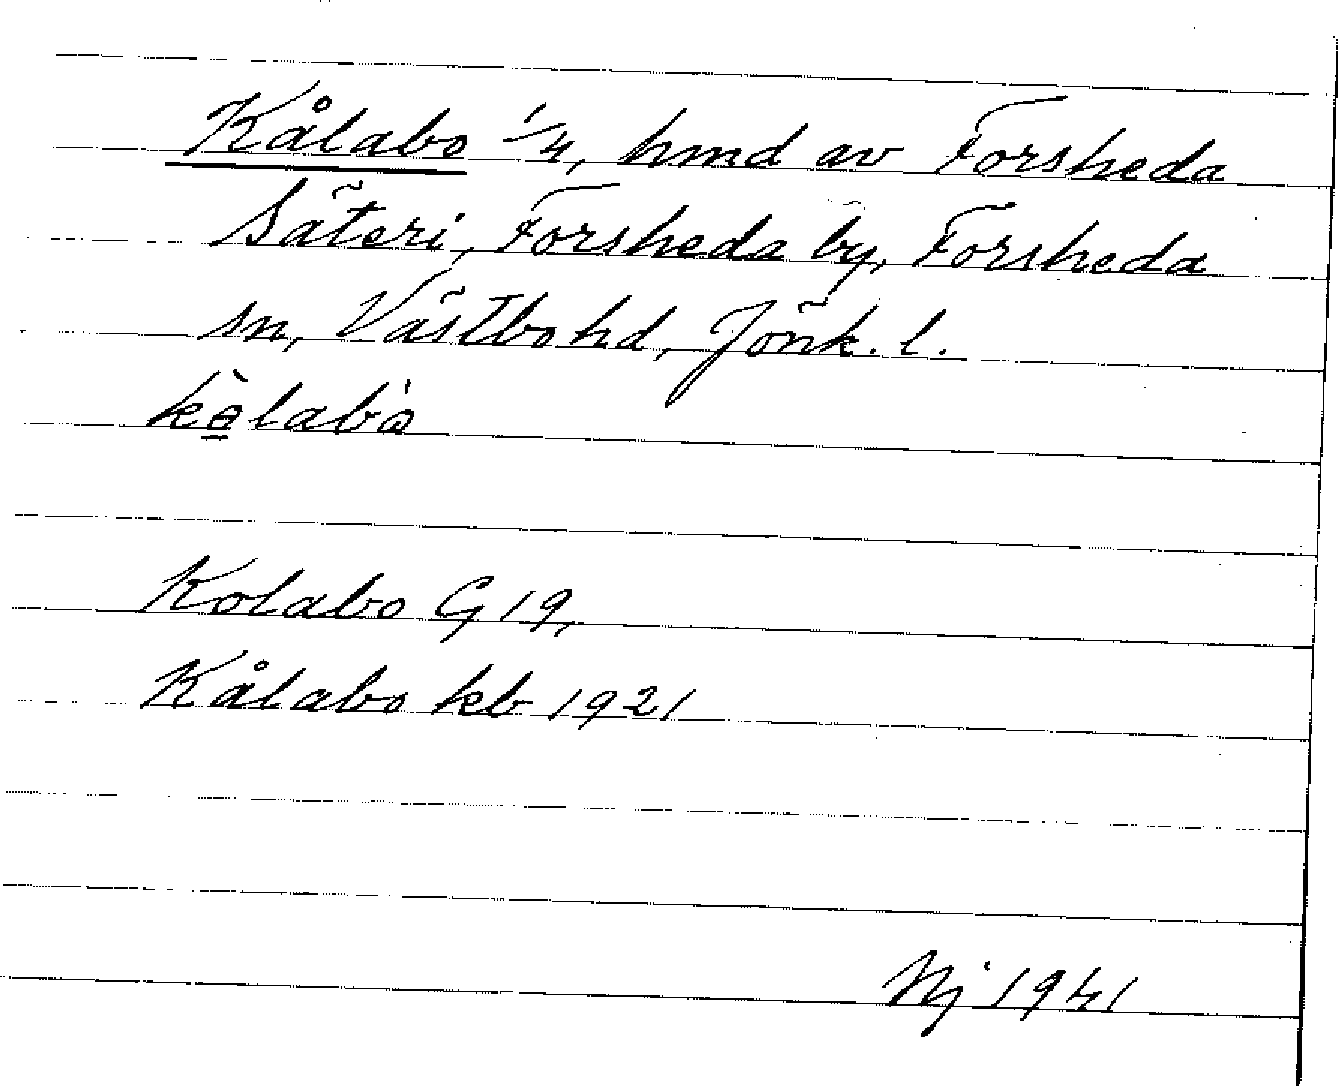 Kålabo 1/4, hmd av Forsheda
Säteri, Forsheda by, Forsheda
sn, Västbo hd, Jönk. l.
Kolabo G 19,
Kålabo kb 1921
Nj 1941